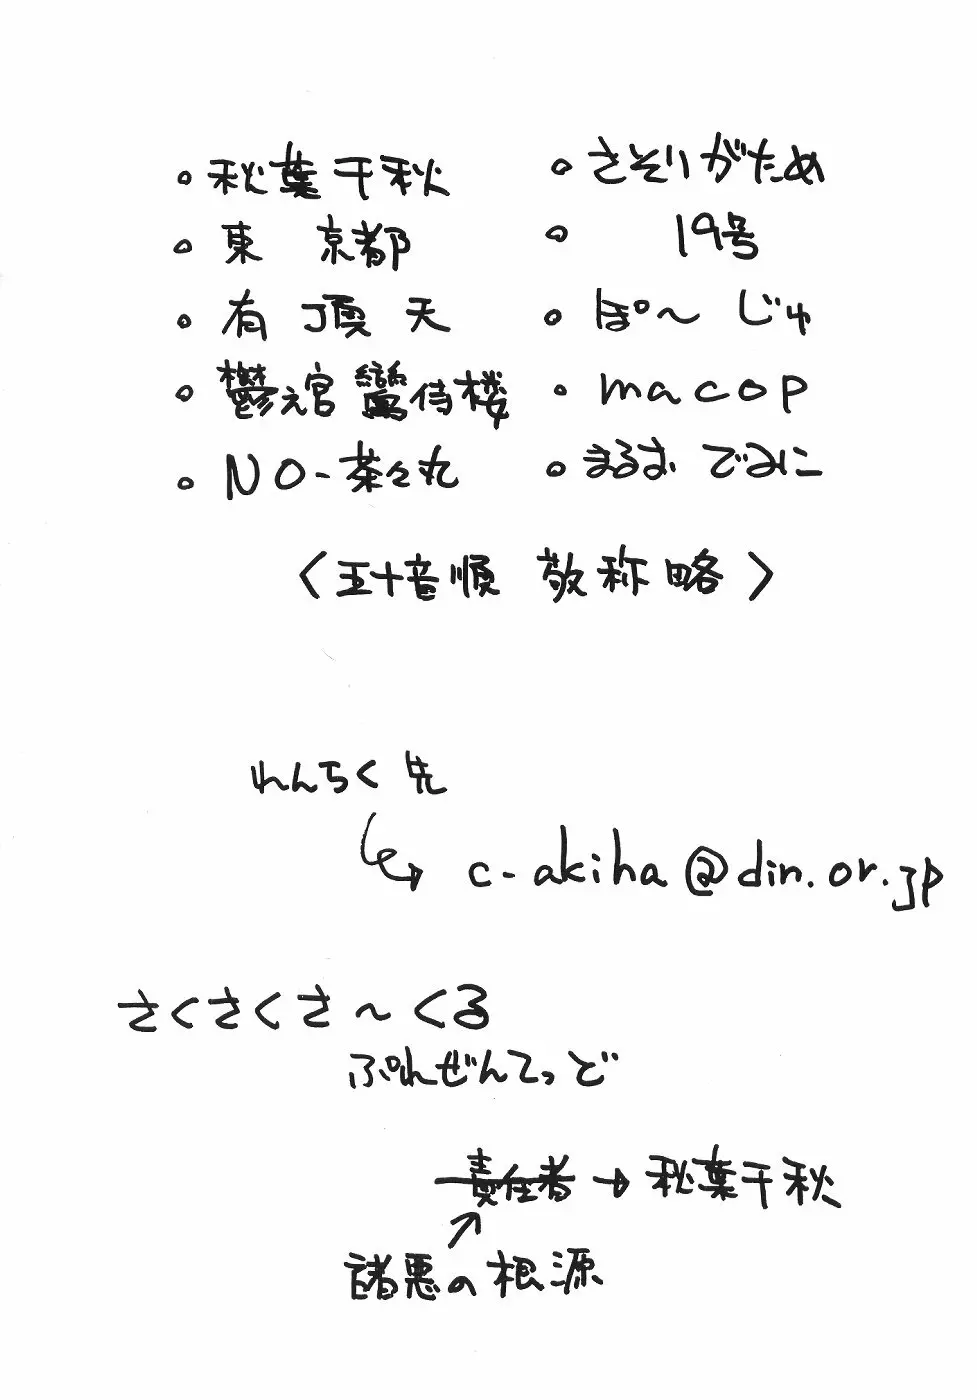 ・秋葉千秋
・東 京都
・有頂天
・鬱え宮 鸞侍楼
・NO-茶々丸
・さそりがため
・19号
・ぽ〜じゅ
・macop
・まるお でみに
〈五十音順 敬称略〉
れんちく先
c-akiha@din.or.jp
さくさくさ〜くる
ぷれぜんてっど
責任者→秋葉千秋
諸悪の根源